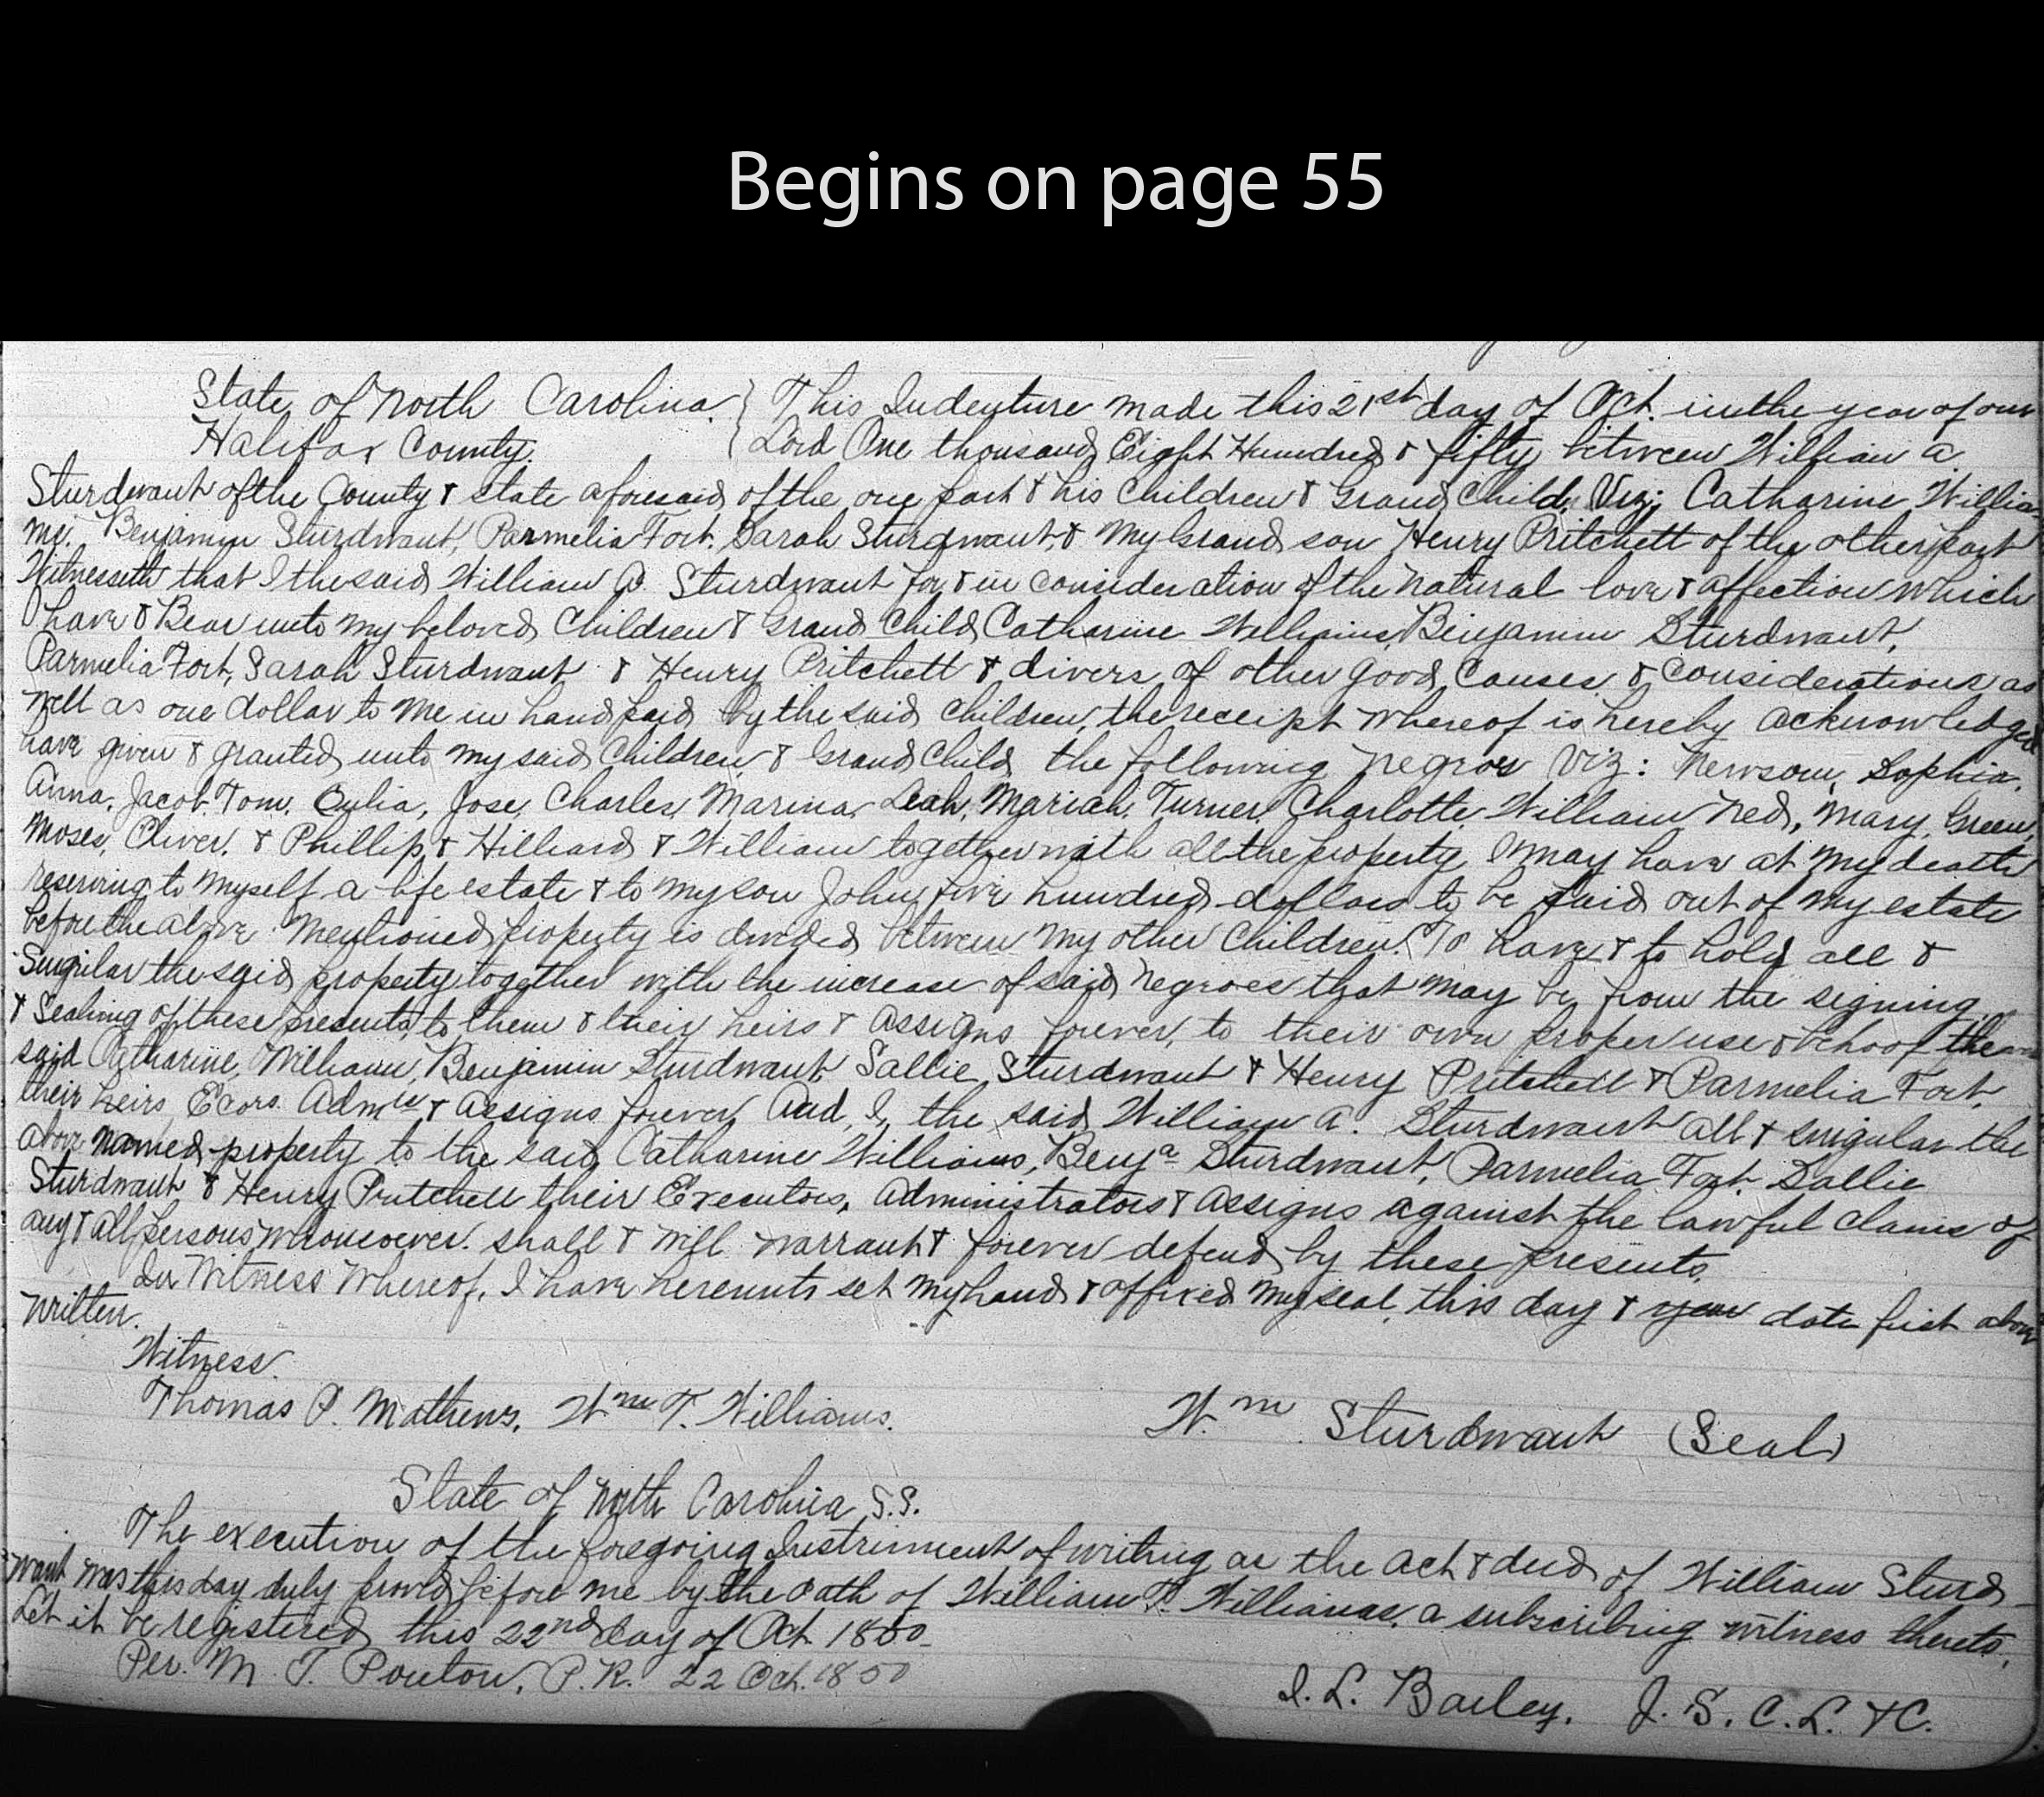 Begins on page 55
State of North Carolina } This Indenture made this 21st day of Oct. in the year of our
Halifax County. } Lord One thousand Eight Hundred & fifty between William A
Sturdwant of the County & state aforesaid of the one part & his Children & Grand Child, Viz; Catharine Willia-
ms. Benjamin Sturdwant, Parmelia Fort. Sarah Sturdwant, & My Grand son Henry Pritchett of the other part
Witnesseth that I the said William A. Sturdwant for & in consideration of the natural love & affection which
I have & Bear unto my beloved Children & Grand Child Catharine Williams, Benjamin Sturdwant,
Parmelia Fort, Sarah Sturdwant & Henry Pritchett & divers of other good Causes & considerations as
well as one dollar to me in hand paid by the said children, the receipt whereof is hereby acknowledged
have given & granted unto my said Children & Grand Child the following negroes Viz: Newsom, Sophia,
Anna, Jacob, Tom, Jose, Charles, Marina, Leah, Mariah, Turner, Charlotte, William Ned, Mary, Green,
Moses, Oliver, & Phillip & Hilliard & William together with all the property I may have at my death
reserving to myself a life estate & to my son John five hundred dollars to be paid out of my estate
before the above mentioned property is divided between my other Children. To have & to hold all &
Singular the said property together with the increase of said negroes that may be from the signing
& Sealing of these presents, to them & their heirs & assigns forever, to their own proper use & behoof the
said Catharine, William, Benjamin Sturdwant Sallie Sturdwant & Henry Pritchett & Parmelia Fort,
their heirs Ecors. & assigns forever And, I, the said William A. Sturdwant all & singular the
above named property to the said Catharine Williams, Benja Sturdwant, Parmelia Fort. Sallie
Sturdwant & Henry Pritchett their Executors, administrators & assigns against the lawful claims of
any & all persons whomsoever shall & will warrant & forever defend by these presents.
In Witness Whereof, I have hereunto set my hand & affixed my seal, this day & year date first above
written.
Witness.
Thomas P. Mathews, Wm T. Williams.
Wm Sturdwant (Seal)
State of North Carolina S.S.
The execution of the foregoing Instrument of writing as the act & deed of William Sturd-
want was this day duly proved before me by the oath of William T. Williams, a subscribing witness thereto,
Let it be registered this 22nd day of Oct 1850
Per. M. T. Ponton, P.R. 22 Oct. 1850
J. L. Bailey, J. S. C. L. & C.